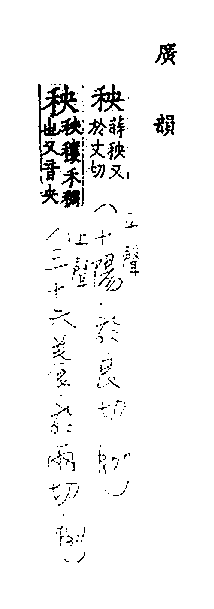 廣韻
秧
蒔秧又
於丈切
聲
十陽.於良切.
秧
秧穰禾稠
也又音央
上聲
三十六養.於兩切.